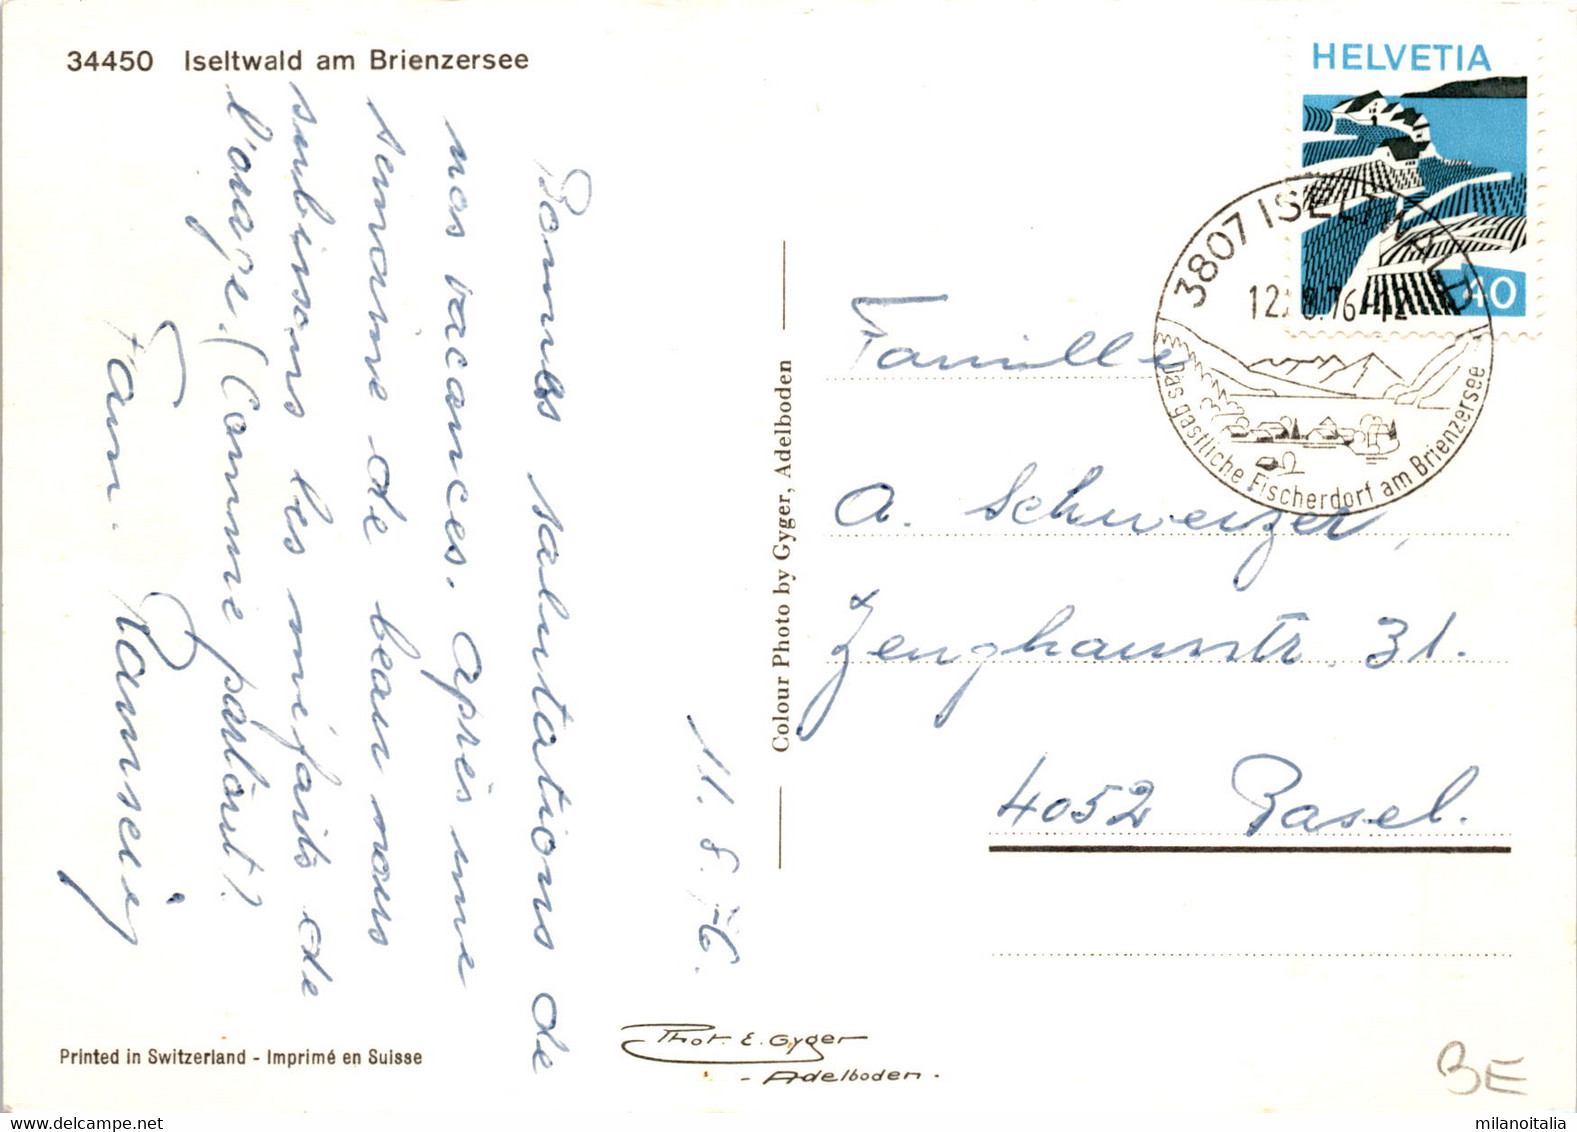 34450 Iseltwald am Brienzersee
11.8.76.
Bonnes salutations de
nos vacances. Après une
semaine de beau nous
subissons les méfaits de
l'orage. (Comme partout?
Fam. Ramseier
Colour Photo by Gyger, Adelboden
HELVETIA
40
3807 ISELTWALD
12.8.76-12
Das gastliche Fischerdorf am Brienzersee
Famille
A. Schweizer,
Zeughausstr. 31.
4052 Basel.
Printed in Switzerland - Imprimé en Suisse
Phot. E. Gyger
- Adelboden.
BE
milanoitalia